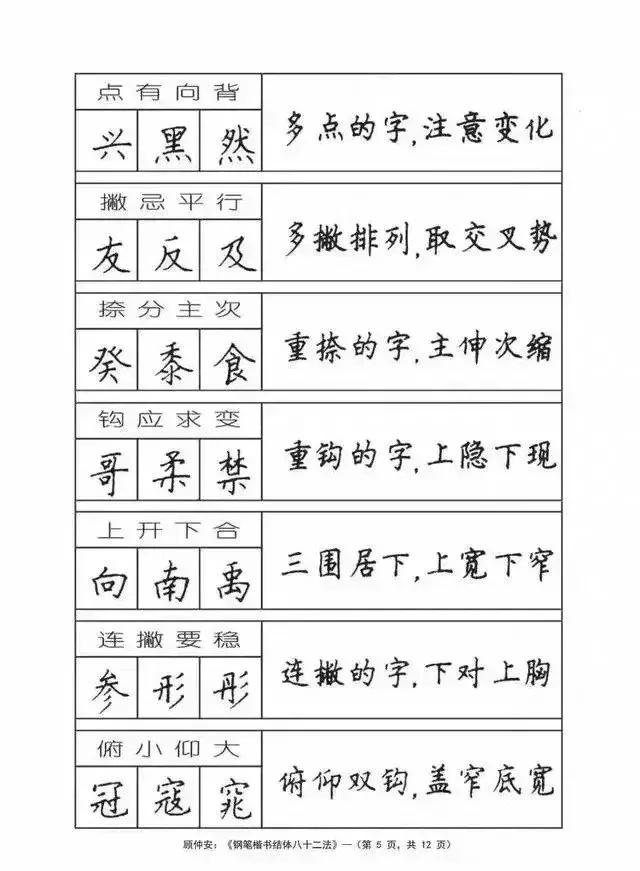 点有向背
兴黑然
多点的字,注意变化
撇忌平行
友反及
多撇排列,取交叉势
捺分主次
癸黍食
重捺的字,主伸次缩
钩应求变
哥柔禁
重钩的字,上隐下现
上开下合
向南禹
三围居下,上宽下窄
连撇要稳
参形彤
连撇的字,下对上胸
俯小仰大
冠寇窕
俯仰双钩,盖窄底宽
顾仲安:《钢笔楷书结体八十二法》—(第 5 页, 共 12 页)